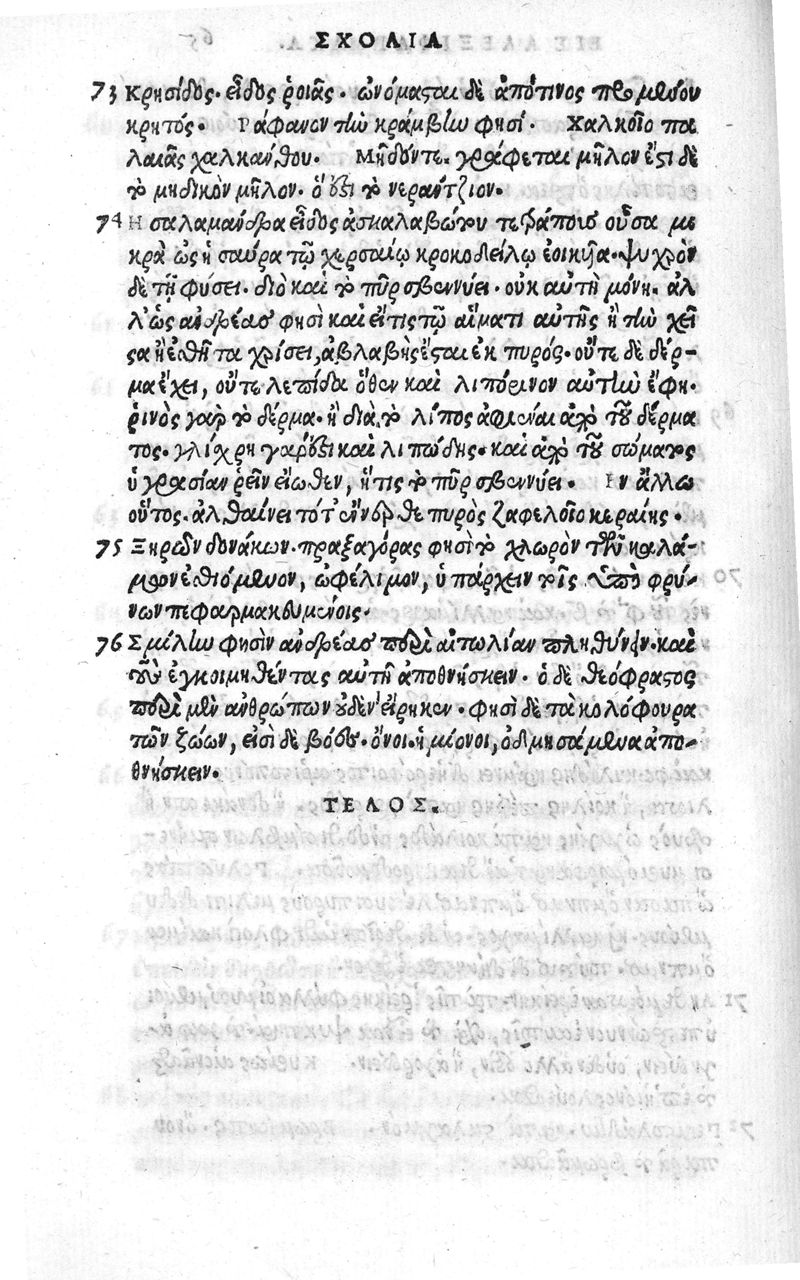 ΣΧΟΛΙΑ
73 Κρησίδος. εἶδος ῥοιᾶς. ὠνόμασται δὲ ἀπό τινος
κρητός. Ράφανον τὴν κράμβην φησί. Χαλκοῖο πα
λαιᾶς χαλκάνθου. Μηδόντε. γράφεται μῆλον ἔστι δὲ
τὸ μηδικὸν μῆλον. ὅ ἐστι τὸ νεράντζιον.
74 Η σαλαμάνδρα εἶδος ἀσκαλαβώτου τετράποις οὖσα μι
κρὰ ὡς ἡ σαύρα τῷ χερσαίῳ κροκοδείλῳ ἐοικυῖα. ψυχρὸν
δὲ τῇ φύσει. διὸ καὶ τὸ πῦρ σβεννύει. οὐκ αὐτὴ μόνη. ἀλ
λ' ὡς ἀνδρέας φησὶ καὶ εἴ τις τῷ αἵματι αὐτῆς ἢ τὴν χεῖ
ρα ἢ ἐσθῆτα χρίσει, ἀβλαβὴς ἔσται ἐκ πυρός. οὔτε δὲ δέρ-
μα ἔχει, οὔτε λεπίδα ὅθεν καὶ λιπόρινον αὐτὴν ἔφη.
ῥινὸς γὰρ τὸ δέρμα. ἢ διὰ τὸ λίπος ἀφιέναι ἀπὸ τοῦ δέρμα
τος. γλίχρη γάρ ἐστι καὶ λιπώδης. καὶ ἀπὸ τοῦ σώματος
ὑγρασίαν ῥεῖν εἴωθεν, ἥτις τὸ πῦρ σβεννύει. Ιν ἄλλω
οὕτος. ἀλθαίνει τότ' ἔνερθε πυρὸς ζαφελοῖο κεραίης.
75 Ξηρῶν δονάκων. πραξαγόρας φησὶ τὸ χλωρὸν τῶν καλά-
μων ἐσθιόμενον, ὠφέλιμον, ὑπάρχειν τοῖς ὑπὸ φρύ-
νων πεφαρμακευμένοις.
76 Σμίλην φησὶν ἀνδρέας περὶ αἰτωλίαν πληθύνειν. καὶ
τοὺς ἐγκοιμηθέντας αὐτῇ ἀποθνήσκειν. ὁ δὲ θεόφραστος
περὶ μὲν ἀνθρώπων οὐδὲν εἴρηκεν. φησὶ δὲ τὰ κολόφουρα
τῶν ζώων, εἰσὶ δὲ βόες. ὄνοι. ἡμίονοι, ὀδμησάμενα ἀπο-
θνήσκειν.
ΤΕΛΟΣ.